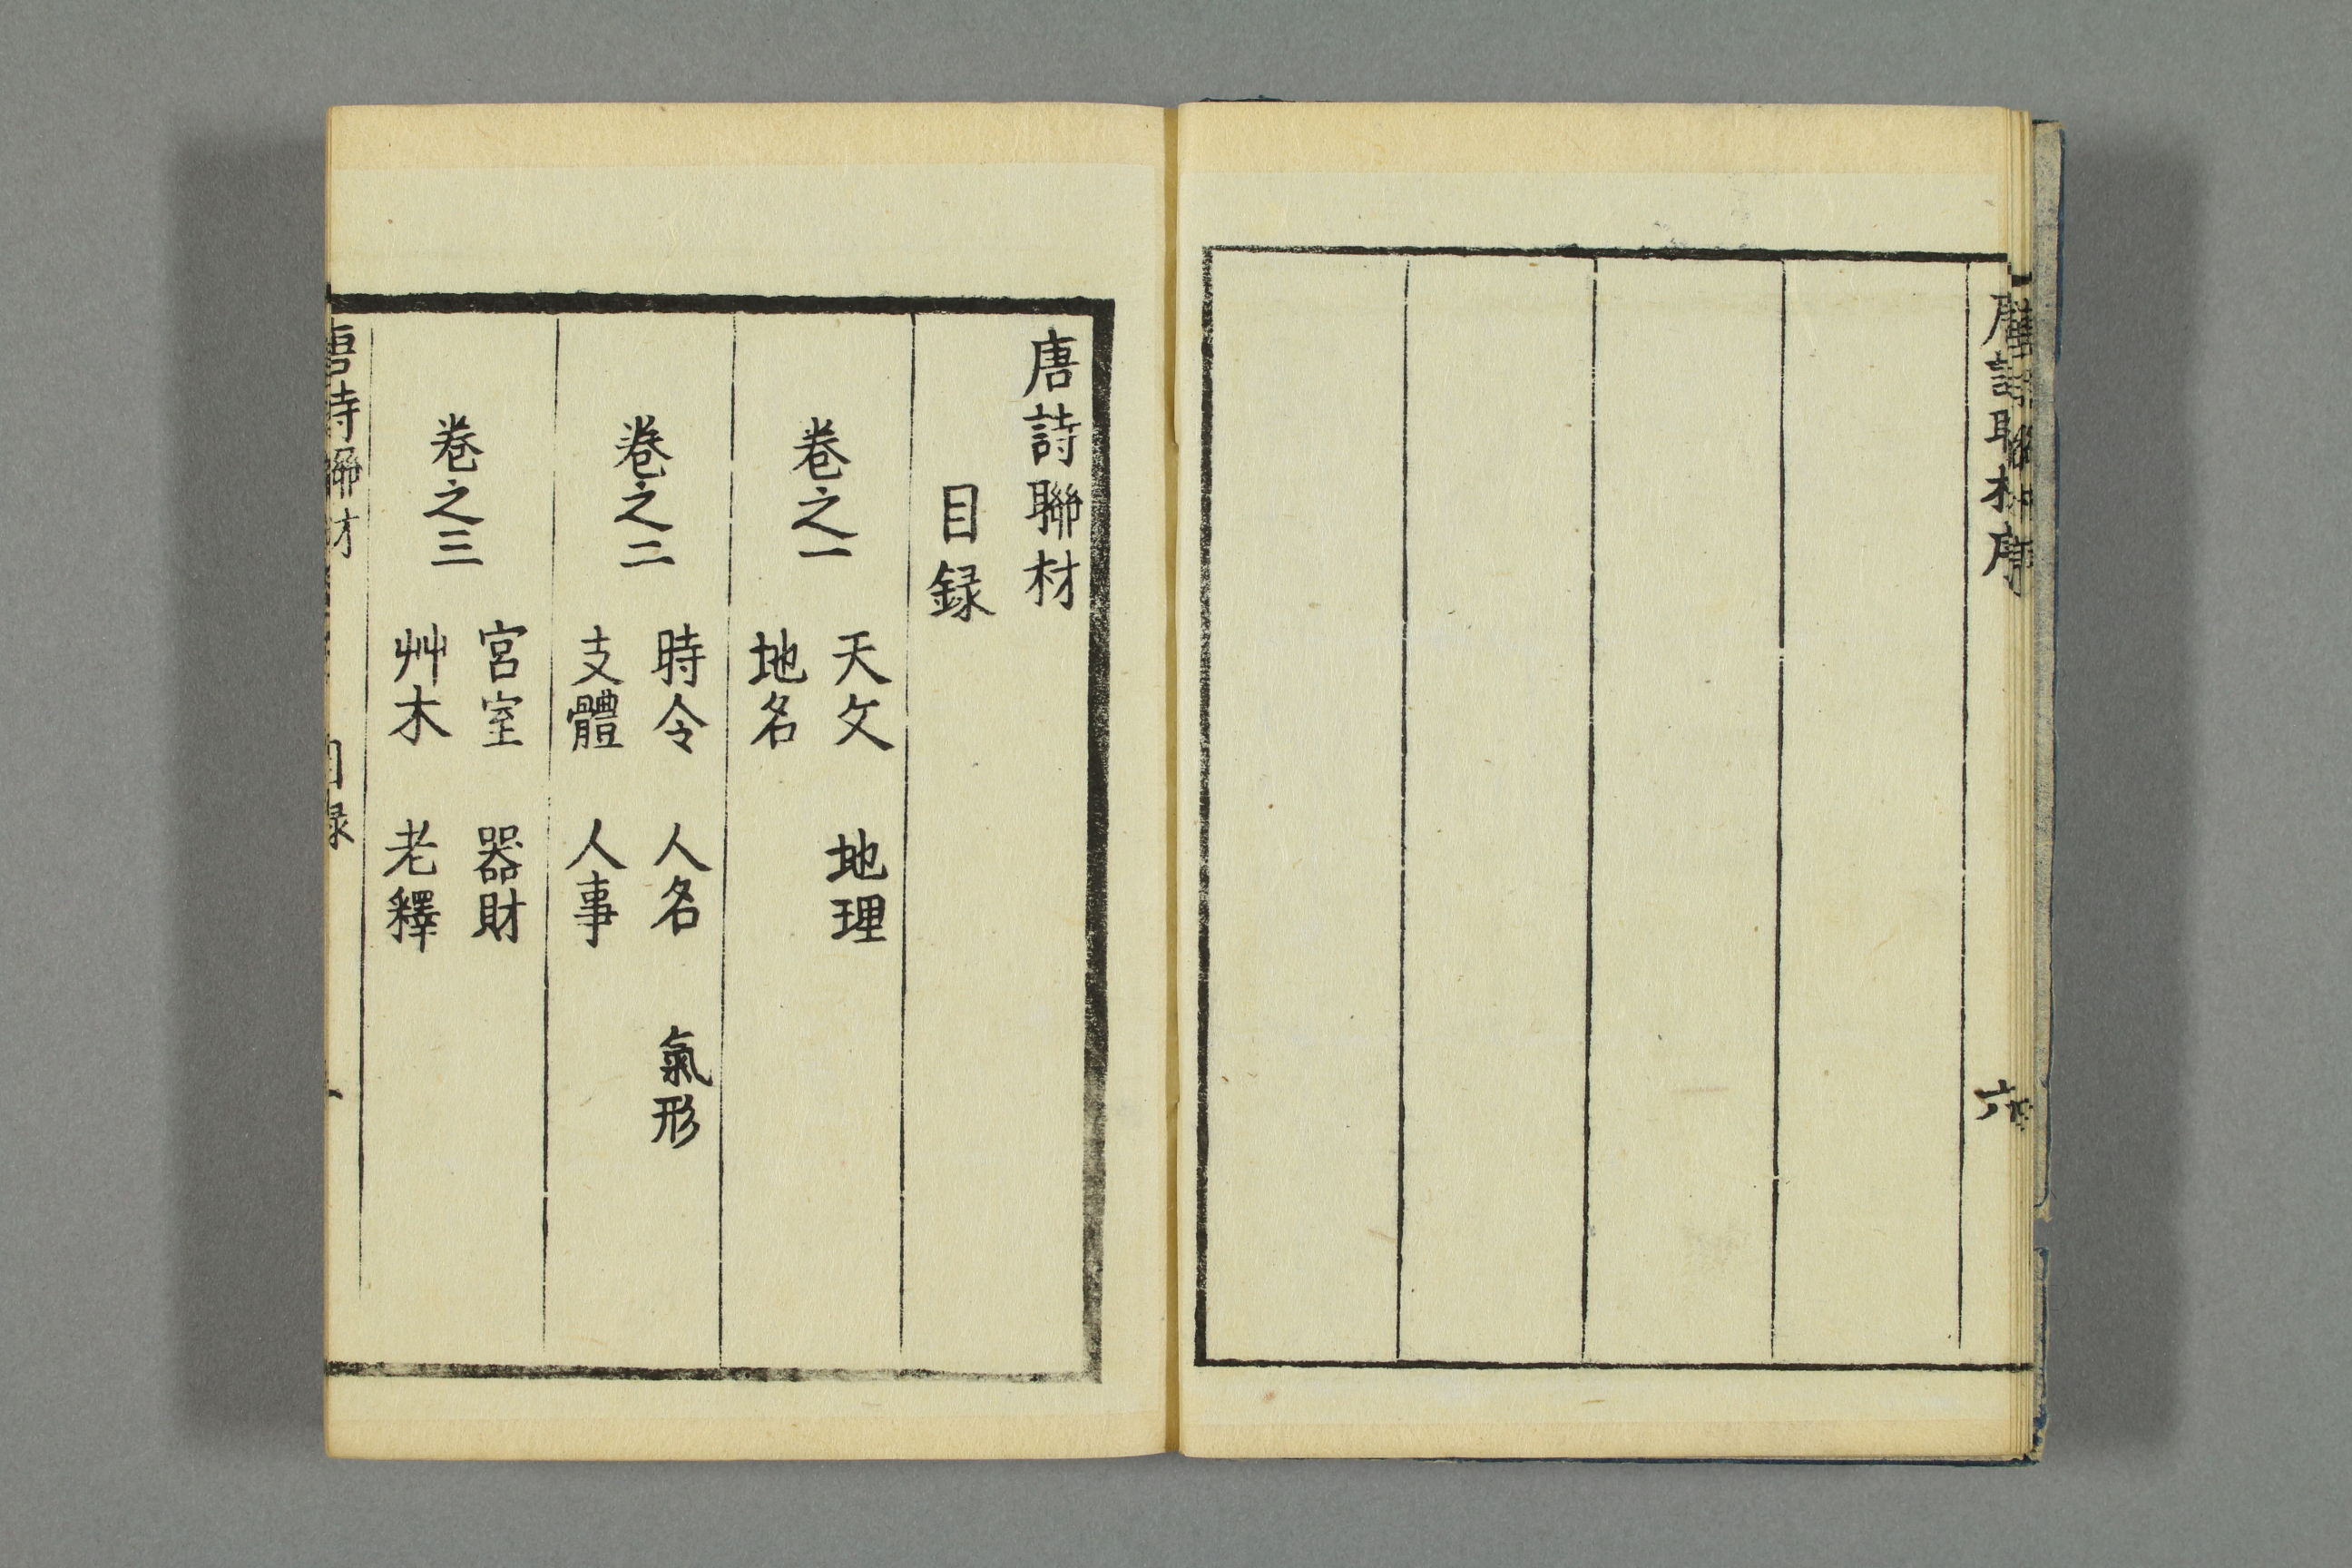 唐詩聯材序
六
唐詩聯材
目録
卷之一
天文 地理
地名
卷之二
時令 人名 氣形
支體 人事
卷之三
宮室 器財
艸木 老釋
唐詩聯材
目録